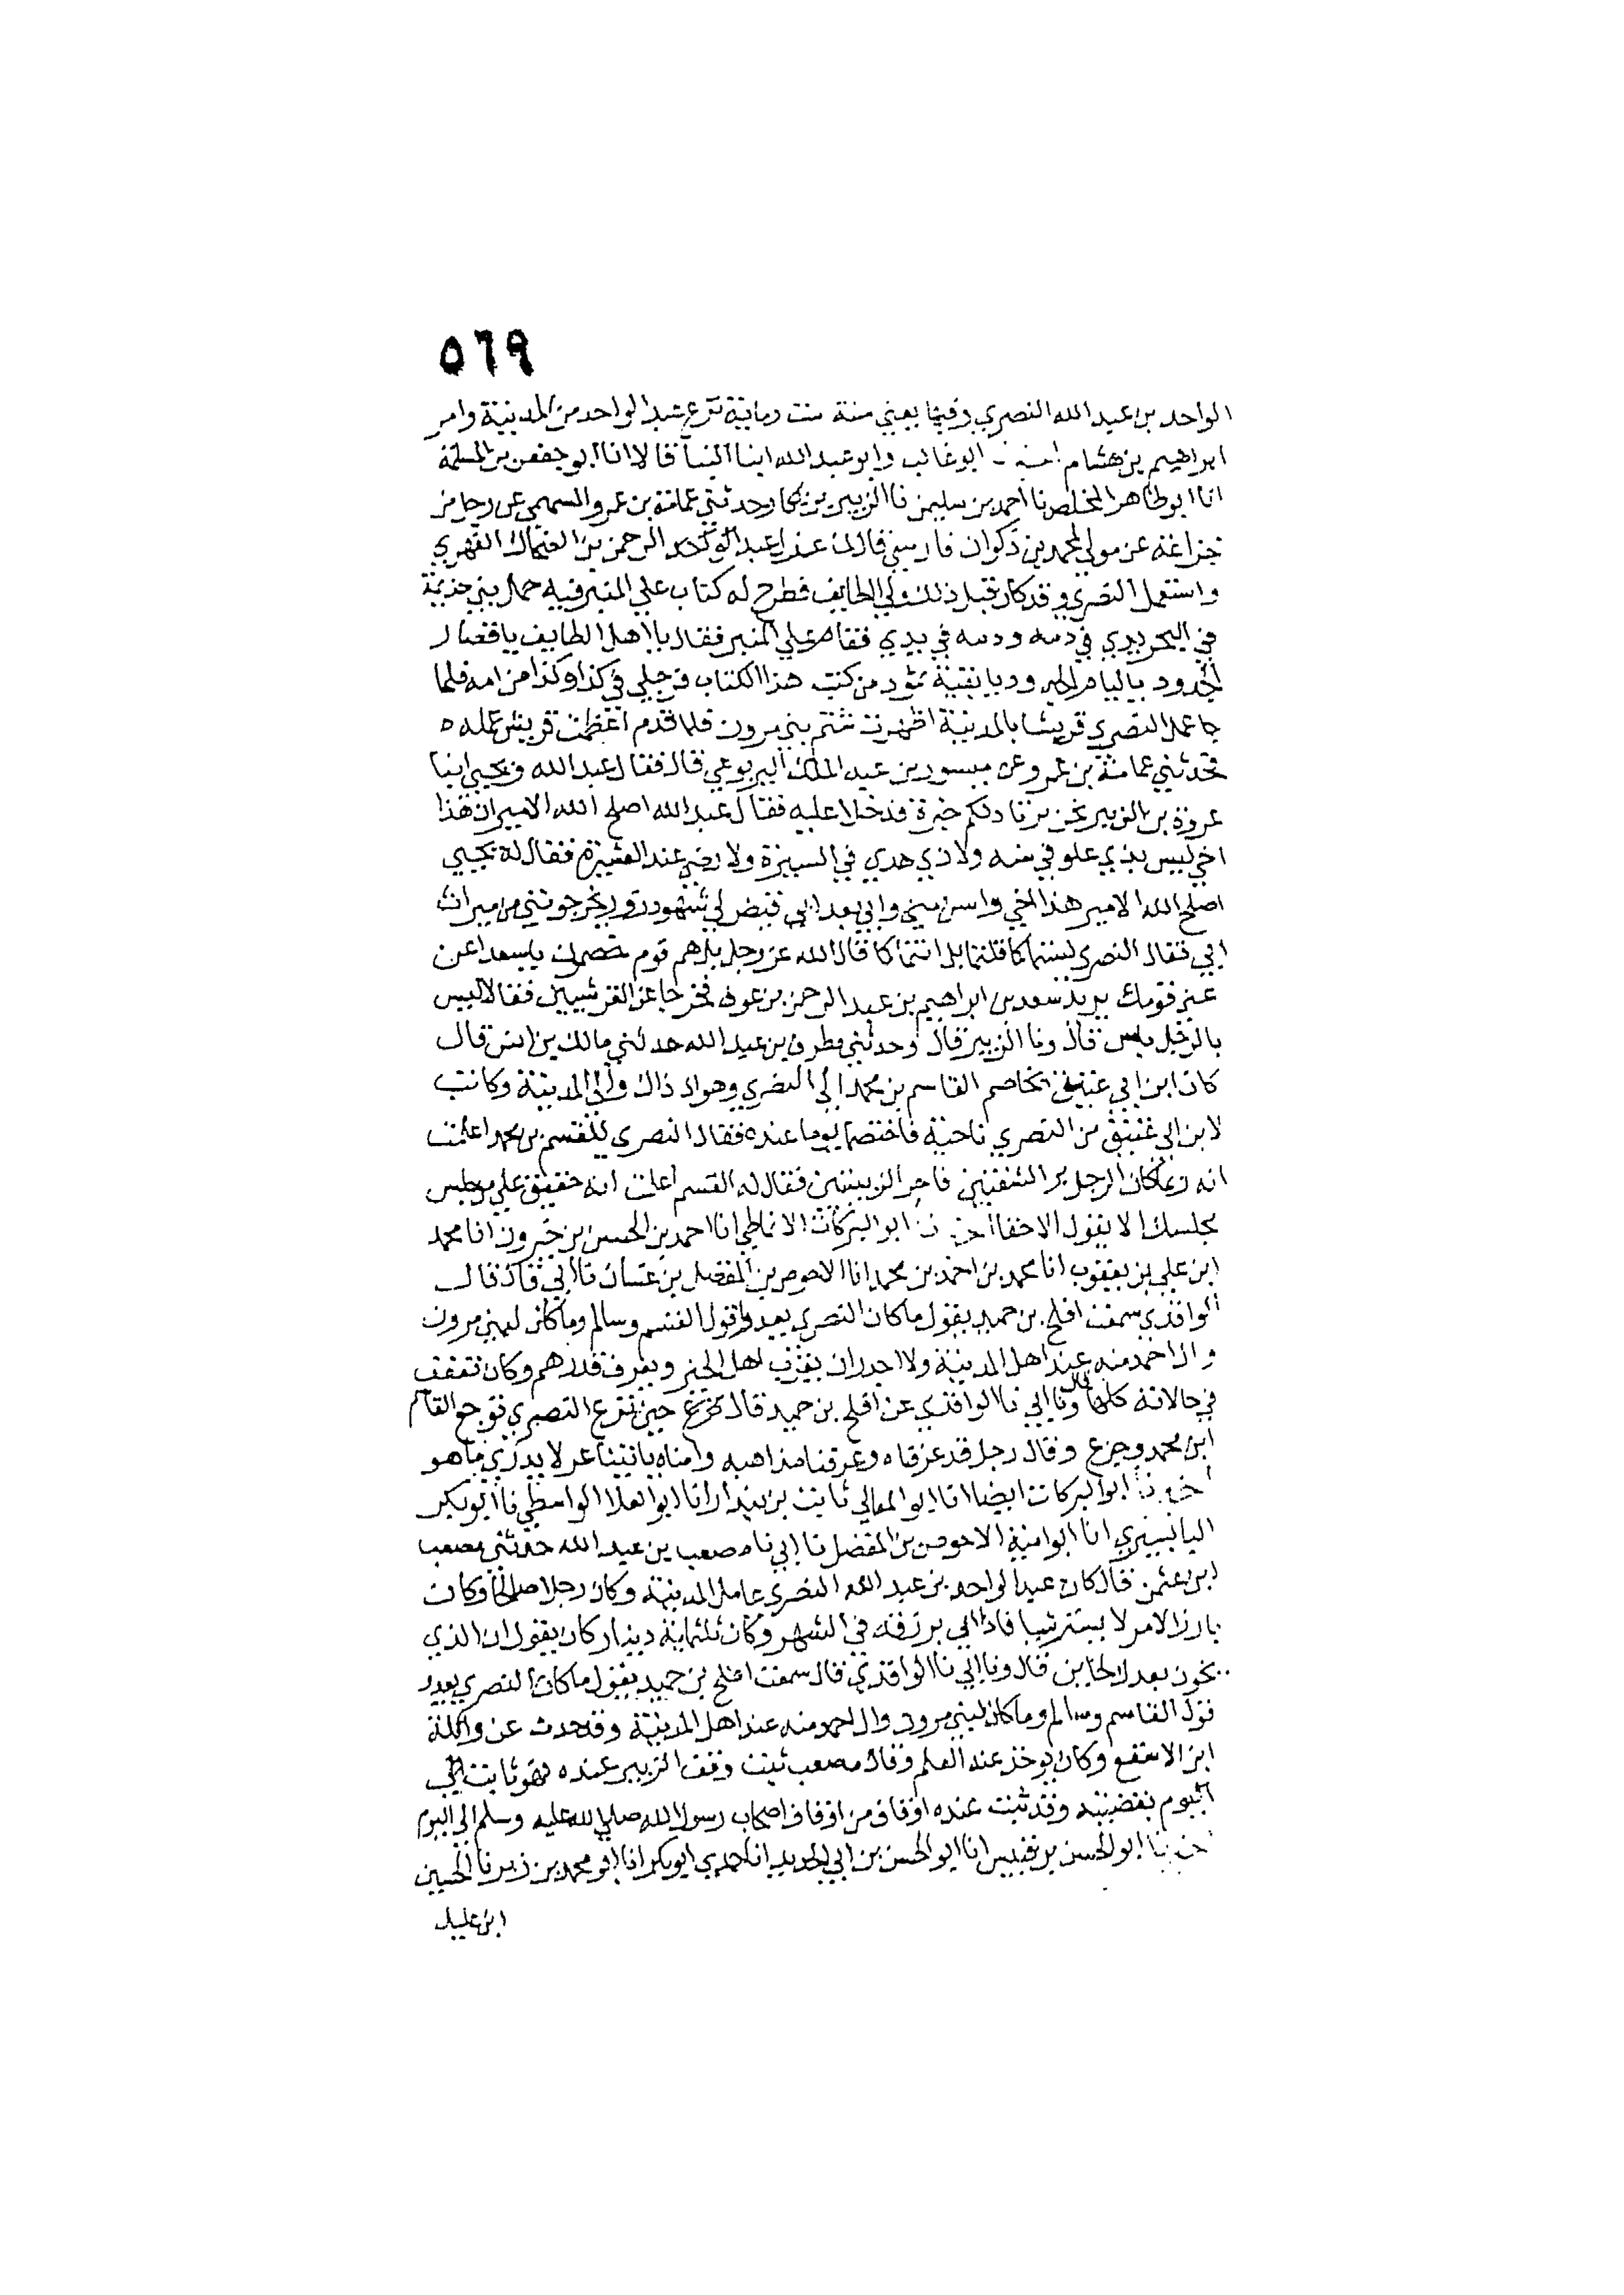 ٥٦٩
الواحد بن عبد الله النصري وفيها يعني سنة ست ومائة نزع عبد الواحد من المدينة وامر
ابراهيم بن هشام ابو غالب وابو عبد الله ابنا البنا قالا انا ابو جعفر بن المسلمة
انا ابو طاهر المخلص نا احمد بن سليمن نا الزبير بن بكار وحدثني عمامة بن عمرو السهمي عن رجل من
خزاعة عن مولى لمحمد بن ذكوان قال عبد الرحمن بن الضحاك الفهري
واستعمل النصري وقد كان قبل ذلك ولي الطايف فطرح له كتاب علي المنبر فيه حمال بني جذيمة
في البحر يدي في دمه ودمه في يدي فقام علي المنبر فقال يا اهل الطايف
ثمود من كتب هذا الكتاب فرجلي في كذا وكذا من امه فلما
جا عمل النصري قريشا بالمدينة اظهرت شتم بني مرون فلما قدم اعظمت قريش عمله ه
فحدثني عمامة بن عمرو عن مسور بن عبد الملك اليربوعي قال فقال عبد الله ويحيي ابنا
عروة بن الزبير نحن خبرة فدخلا عليه فقال عبد الله اصلح الله الامير ان هذا
اخي ليس بذي علو في سنه ولا ذي هدي في السيرة ولا رضي عند العشيرة فقال له يحيي
اصلح الله الامير هذا اخي واسن مني وابي بعد ابي قيض لي شهود زور يخرجونني من ميراث
ابي فقال النصري لستما كما قلتما بل انتما كما قال الله عز وجل بل هم قوم خصمون يا سعد اغن
عني قومك يريد سعد بن ابراهيم بن عبد الرحمن بن عوف فخرجا عن القرشيين فقالا ليس
بالرجل باس قال ونا الزبير قال وحدثني مطرف بن عبد الله حدثني مالك بن انس قال
كان ابن ابي عتيق يخاصم القاسم بن محمد الي النصري وهو اذ ذاك والي المدينة وكانت
لابن ابي عتيق من النصري ناحية فاختصما يوما عنده فقال النصري للقسم بن محمد اعلمت
انه ربما كان الرجل فقال له القسم اعلمت انه حقيق علي من جلس
مجلسك الا يقول الا حقا ابو البركات الانماطي انا احمد بن الحسن بن خيرون انا محمد
ابن علي بن يعقوب انا محمد بن احمد بن محمد انا الاحوص بن المفضل بن غسان نا ابي قال قال
الواقدي سمعت افلح بن حميد يقول ما كان النصري يعدو قول القسم وسالم وما كان لبني مرون
وال احمد منه عند اهل المدينة ولا اجدر ان يقرب اهل الخير ويعرف قدرهم وكان يتعفف
في حالاته كلها قال ونا ابي نا الواقدي عن افلح بن حميد قال حين نزع النصري توجع القاسم
ابن محمد وجزع وقال رجل قد عرفناه وعرفنا مذاهبه وامناه ياتينا غر لا يدري ما هو
ابو البركات ايضا انا ابو المعالي ثابت بن بندار انا ابو العلا الواسطي نا ابو بكر
البابسيري انا ابو امية الاحوص بن المفضل نا ابي نا مصعب بن عبد الله حدثني مصعب
ابن عثمن قال كان عبد الواحد بن عبد الله النصري عامل المدينة وكان رجلا صالحا وكان
بارز الامر لا يستر شيا فاذا اتي برزقه في الشهر وكان ثلثماية دينار كان يقول ان الذي
يخون بعدك لخاين قال ونا ابي نا الواقدي قال سمعت افلح بن حميد يقول ما كان النصري يعدو
قول القاسم وسالم وما كان لبني مرون وال احمد منه عند اهل المدينة وقد حدث عن واثلة
ابن الاسقع وكان يوخذ عنه العلم وقال مصعب ثبت وقف الزبير عنده فهو ثابت الي
اليوم بقضيته وقد ثبت عنده اوقاف من اوقاف اصحاب رسول الله صلي الله عليه وسلم الي اليوم
ابو الحسن بن قبيس انا ابو الحسن بن ابي الحديد انا جدي ابو بكر انا ابو محمد بن زبر نا الحسين
ابن عليل